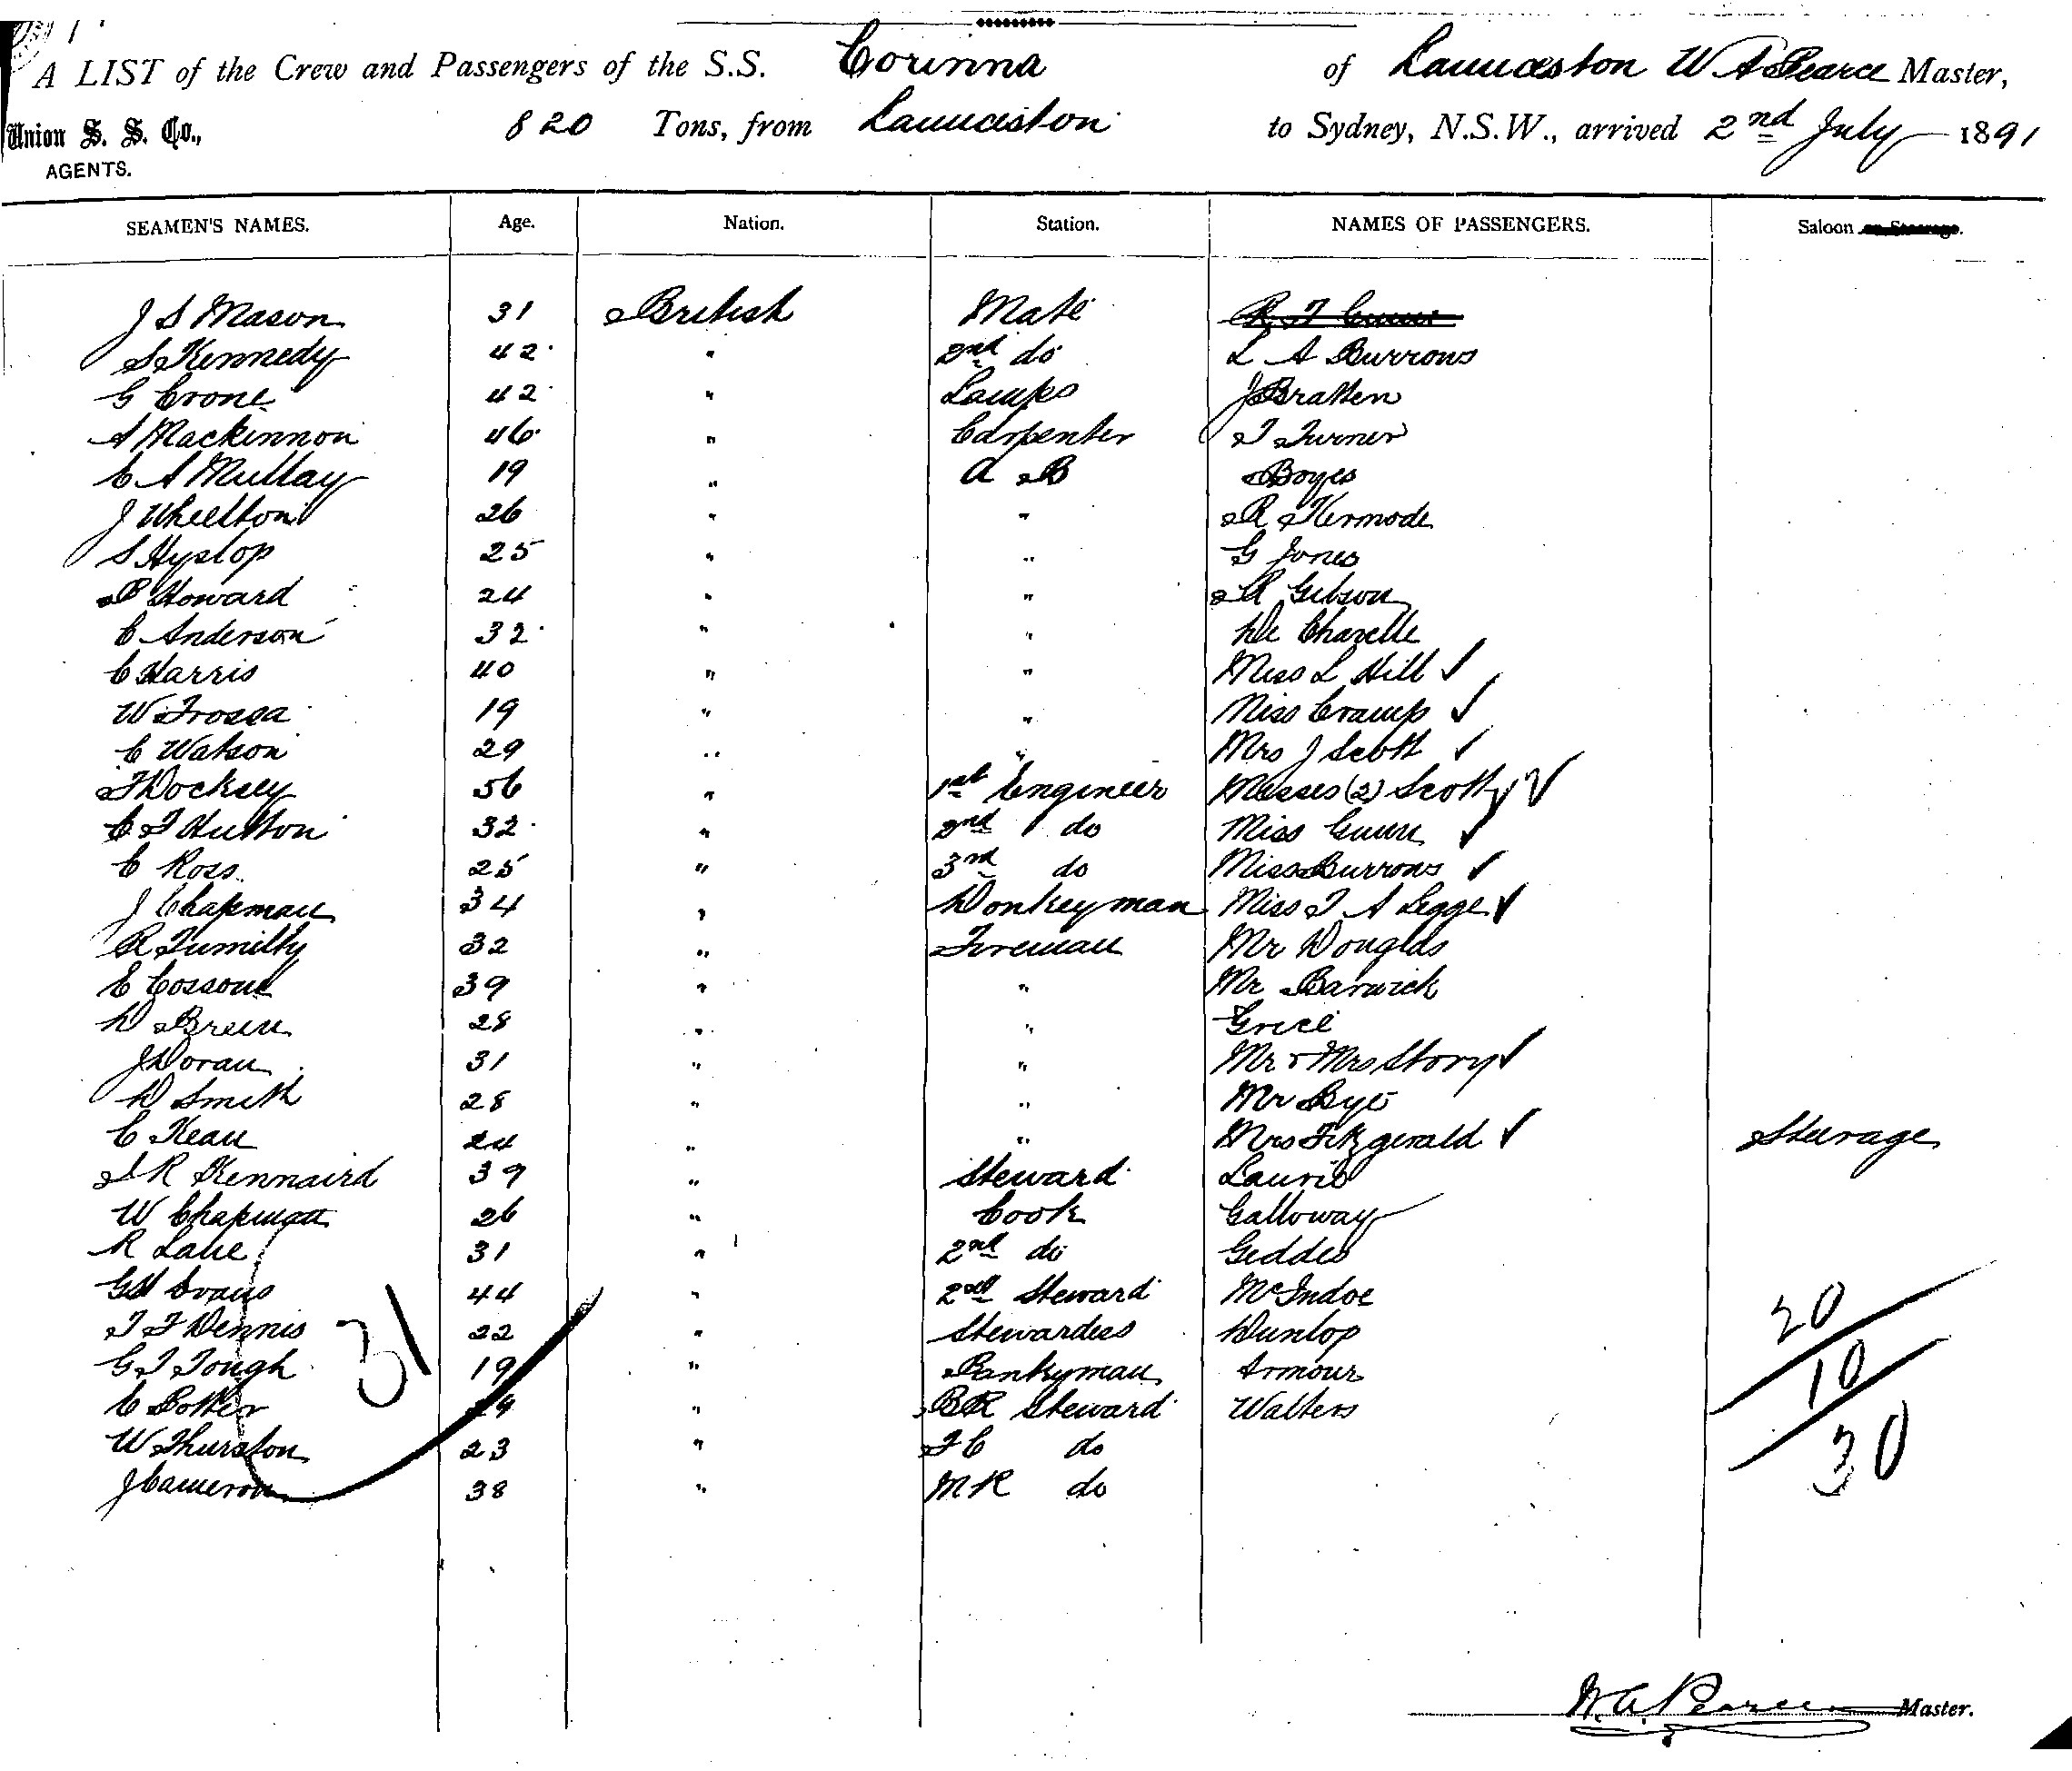 A LIST of the Crew and Passengers of the S.S. Corinna of Launceston W A Pearce Master,
Union S. S. Co., 820 Tons, from Launceston to Sydney, N.S.W., arrived 2nd July 1891
AGENTS.
SEAMEN'S NAMES. Age. Nation. Station. NAMES OF PASSENGERS. Saloon or Steerage.
J S Mason 31 British Mate R T Gunn
S Kennedy 42 " 2nd do L A Burrows
G Crone 42 " Lamps J Bratten
A Mackinnon 46 " Carpenter T Turner
C A Mullay 19 " A B Boyes
J Wheelton 26 " " R Kermode
S Hyslop 25 " " G Jones
P Howard 24 " " R Gibson
C Anderson 32 " " De Charelle
C Harris 40 " " Miss L Hill ✓
W Trossa 19 " " Miss Cramp ✓
C Watson 29 " " Mrs J Scott ✓
T Docksey 56 " 1st Engineer Misses (2) Scott ✓ ✓
C T Hutton 32 " 2nd do Miss Gunn ✓
C Ross 25 " 3rd do Miss Burrows ✓
J Chapman 34 " Donkeyman Miss T A Legge ✓
R Tumilty 32 " Fireman Mr Douglas
E Cossone 39 " " Mr Barwick
D Breen 28 " " Grice
J Doran 31 " " Mr & Mrs Story ✓
D Smith 28 " " Mr Bye
C Kean 24 " " Mrs Fitzgerald ✓ Steerage
S R Kennaird 39 " Steward Laurie
W Chapman 26 " Cook Galloway
R Lane 31 " 2nd do Geddes
G H Evans 44 " 2nd Steward McIndoe
T F Dennis 22 " Stewardess Dunlop 20
G T Tough 19 " Pantryman Armour 10
C Potter 29 " BR Steward Walters 30
W Thurston 23 " F C do
J Cameron 38 " M R do
31
W. A. Pearce Master.